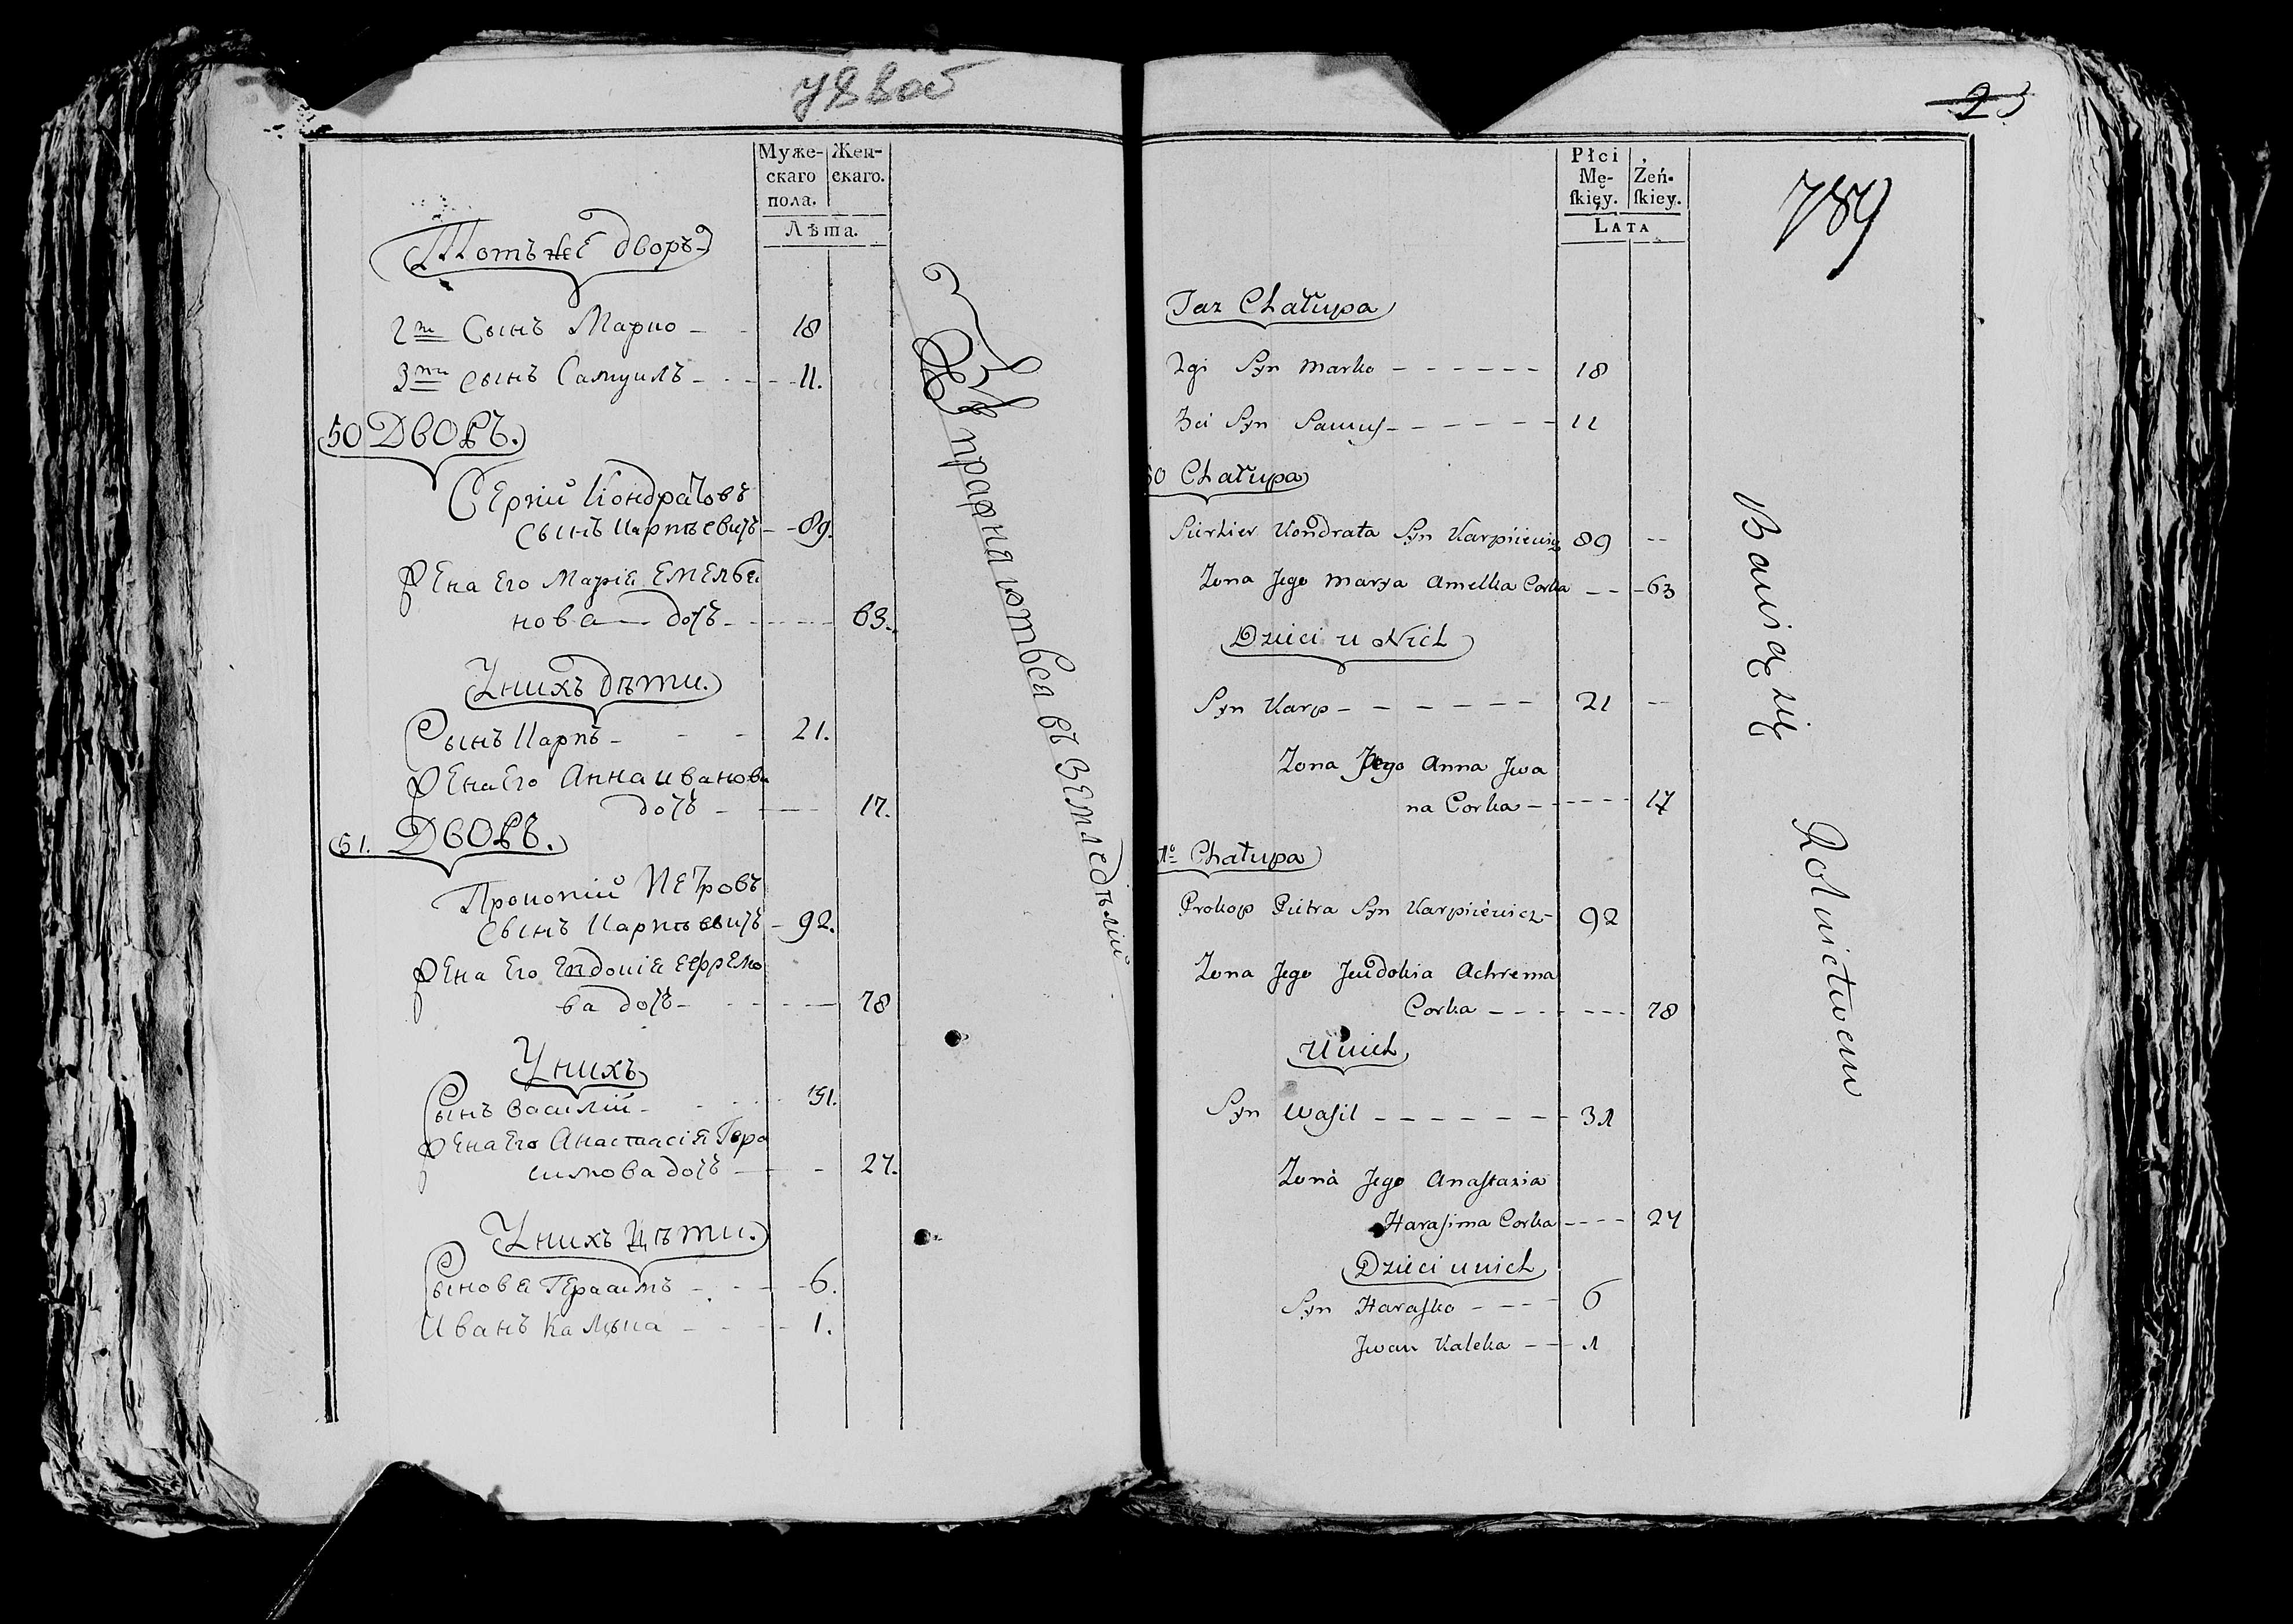 Муже-
скаго
пола.
Жен-
скаго.
Лѣта.
Тотъ же дворъ
2й Сынъ Марко – – 18
3й сынъ Самуилъ – – – 11.
50 ДВОРЪ.
Сергій Кондратовъ
сынъ Карпѣевичъ – 89.
Жена Его Марія Емелья
нова – дочь – – – 63.
У нихъ дѣти.
Сынъ Карпъ – – – 21.
Жена Его Анна иванова
дочь – – 17.
51. ДВОРЪ.
Прокопій Петровъ
Сынъ Карпѣевичъ – 92.
Жена Его Евдокія Ефремо
ва дочь – – – 78
У нихъ
Сынъ Василій – – – 31.
Жена Его Анастасія Гера
симова дочь – – 27.
У нихъ Дѣти.
Сыновя Герасимъ – – – 6.
Иванъ Калѣка – – – 1.
въ земледѣлій
23
789
Płci
Mę-
ſkięy.
Żeń-
ſkiey.
LATA
Taz Chałupa
2gi Syn Marko – – – – – – 18
3ci Syn Samuś – – – – – – 11
50 Chałupa
Sierhier Kondrata Syn Karpiiewicz 89 --
Zona Jego Marya Amelka Corka – – – 63
Dzieci u Nich
Syn Karp – – – – – – 21 --
Zona Jego Anna Jwa
na Corka – – – – – 17
1º Chałupa
Prokop Pietra Syn Karpiiewicz – 92
Zona Jego Jeudokia Achrema
Corka – – – – – – 78
U nich
Syn Waſil – – – – – – – 31
Zona Jego Anaſtazia
Haraſima Corka – – – – 27
Dzieci u nich
Syn Haraſko – – – – 6
Jwan Kaleka – – 1
Bawią się Rolnictwem